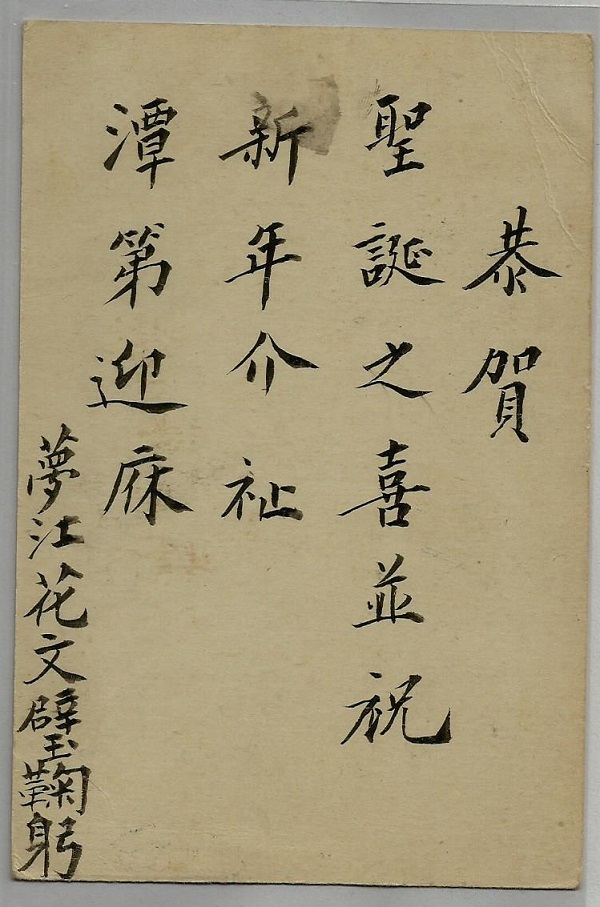 恭賀
聖誕之喜並祝
新年介祉
潭第迎庥
夢江花文璧鞠躬